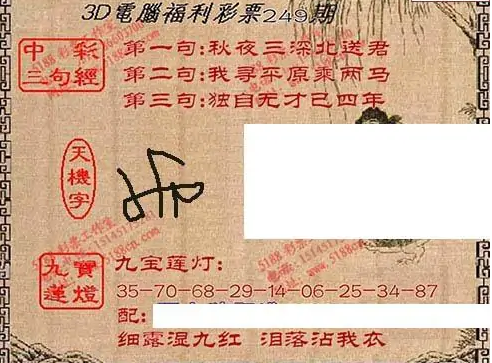 3D電腦福利彩票249期
中彩三句經
第一句:秋夜三深北送君
第二句:我寻平原乘两马
第三句:独自无才己四年
天機字
九寶蓮燈
九宝莲灯:
35-70-68-29-14-06-25-34-87
配:
细露湿九红 泪落沾我衣